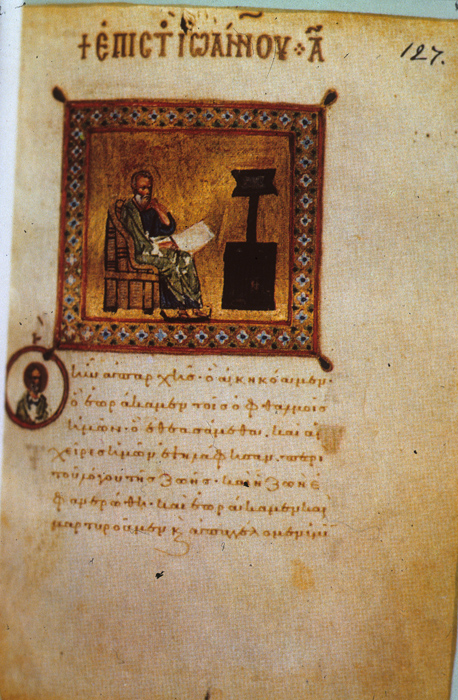 + ἘΠΙΣΤ ἸΩΆΝΝΟΥ · Α̃
127.
Ὃ ἦν ἀπ' ἀρχῆς · ὃ ἀκηκόαμεν ·
ὃ ἑωράκαμεν τοῖς ὀφθαλμοῖς
ἡμῶν · ὃ ἐθεασάμεθα · καὶ αἱ
χεῖρες ἡμῶν ἐψηλάφησαν · περὶ
τοῦ λόγου τῆς ζωῆς · καὶ ἡ ζωὴ ἐ
φανερώθη · καὶ ἑωράκαμεν καὶ
μαρτυροῦμεν κ ἀπαγγέλομεν ὑμῖ